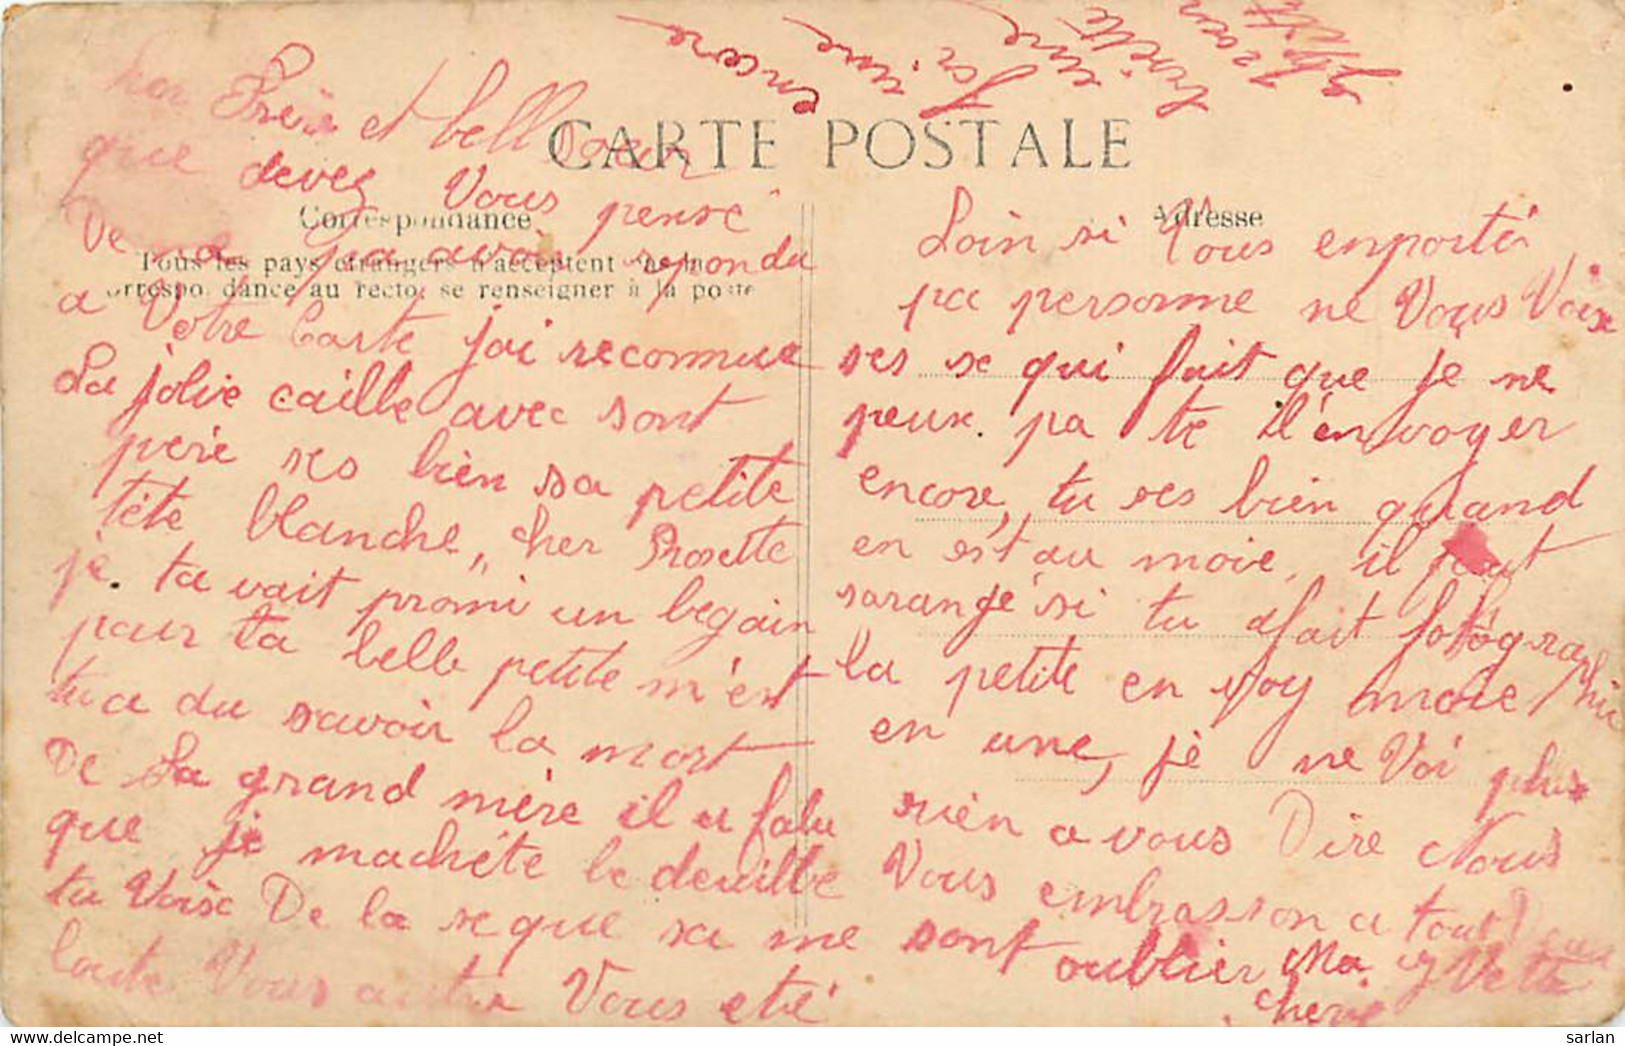 CARTE POSTALE
Correspondance
Adresse
Tous les pays étrangers n'acceptent pas la
correspondance au recto, se renseigner à la poste
cher Frère et bell Soeur
que devez Vous pensé
De ne pa avoir repondu
a Votre Carte j'ai reconnue
La jolie caille avec sont
père ses bien sa petite
tête blanche,, cher Prosette
je ta vait promi un begain
pour ta belle petite m'est
tu a du savoir la mort
De La grand mère il a falu
que je machéte le deuille
tu Voisc De la se que sa me
coute Vous autre Vous eté
Loin si Vous enporté
pa personne ne Vous Voix
ses se qui fait que je ne
peux pa te l'envoyer
encore, tu ses bien quand
en est au moie, il faut
sarangé si tu afait fotographie
la petite en voy moie
en une, je ne Voi plus
rien a vous Dire Nous
Vous embrasson a tout Deux
sont oublier Ma Yvette
cherie
encore
une
sarlan